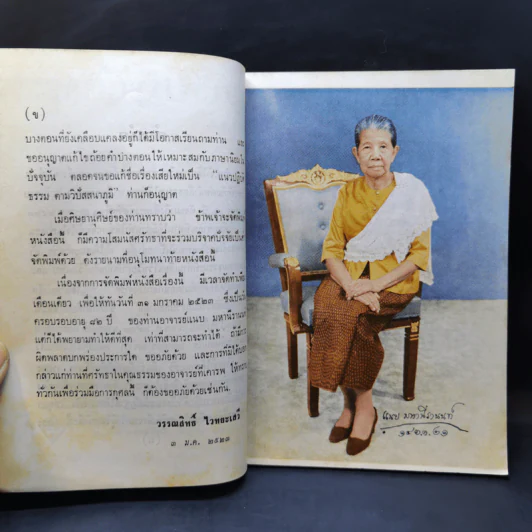 (ข)
บางตอนที่ยังเคลือบแคลงอยู่ก็ได้มีโอกาสเรียนถามท่าน และ
ขออนุญาตแก้ไขถ้อยคำบางตอนให้เหมาะสมกับภาษานิยมใน
ปัจจุบัน ตลอดจนขอแก้ชื่อเรื่องเสียใหม่เป็น "แนวปฏิบัติ
ธรรม ตามวิปัสสนาภูมิ" ท่านก็อนุญาต
เมื่อศิษยานุศิษย์ของท่านทราบว่า ข้าพเจ้าจะจัดพิมพ์
หนังสือนี้ ก็มีความโสมนัสศรัทธาที่จะร่วมบริจาคปัจจัยเป็น
จัดพิมพ์ด้วย ดังรายนามที่อนุโมทนาท้ายหนังสือนี้
เนื่องจากการจัดพิมพ์หนังสือเรื่องนี้ มีเวลาจัดทำเพียง
เดือนเดียว เพื่อให้ทันวันที่ ๓๑ มกราคม ๒๕๒๓ ซึ่งเป็น
ครอบรอบอายุ ๘๒ ปี ของท่านอาจารย์แนบ มหานีรานนท์
แต่ก็ได้พยายามทำให้ดีที่สุด เท่าที่สามารถจะทำได้ ถ้ามี
ผิดพลาดบกพร่องประการใด ขออภัยด้วย และการที่มิได้
กล่าวแก่ท่านที่ศรัทธาในคุณธรรมของอาจารย์ที่เคารพ ให้
ทั่วกันเพื่อร่วมมือการกุศลนี้ ก็ต้องขออภัยด้วยเช่นกัน.
วรรณสิทธิ์ ไวทยะเสวี
๓ ม.ค. ๒๕๒๓
แนบ มหานีรานนท์